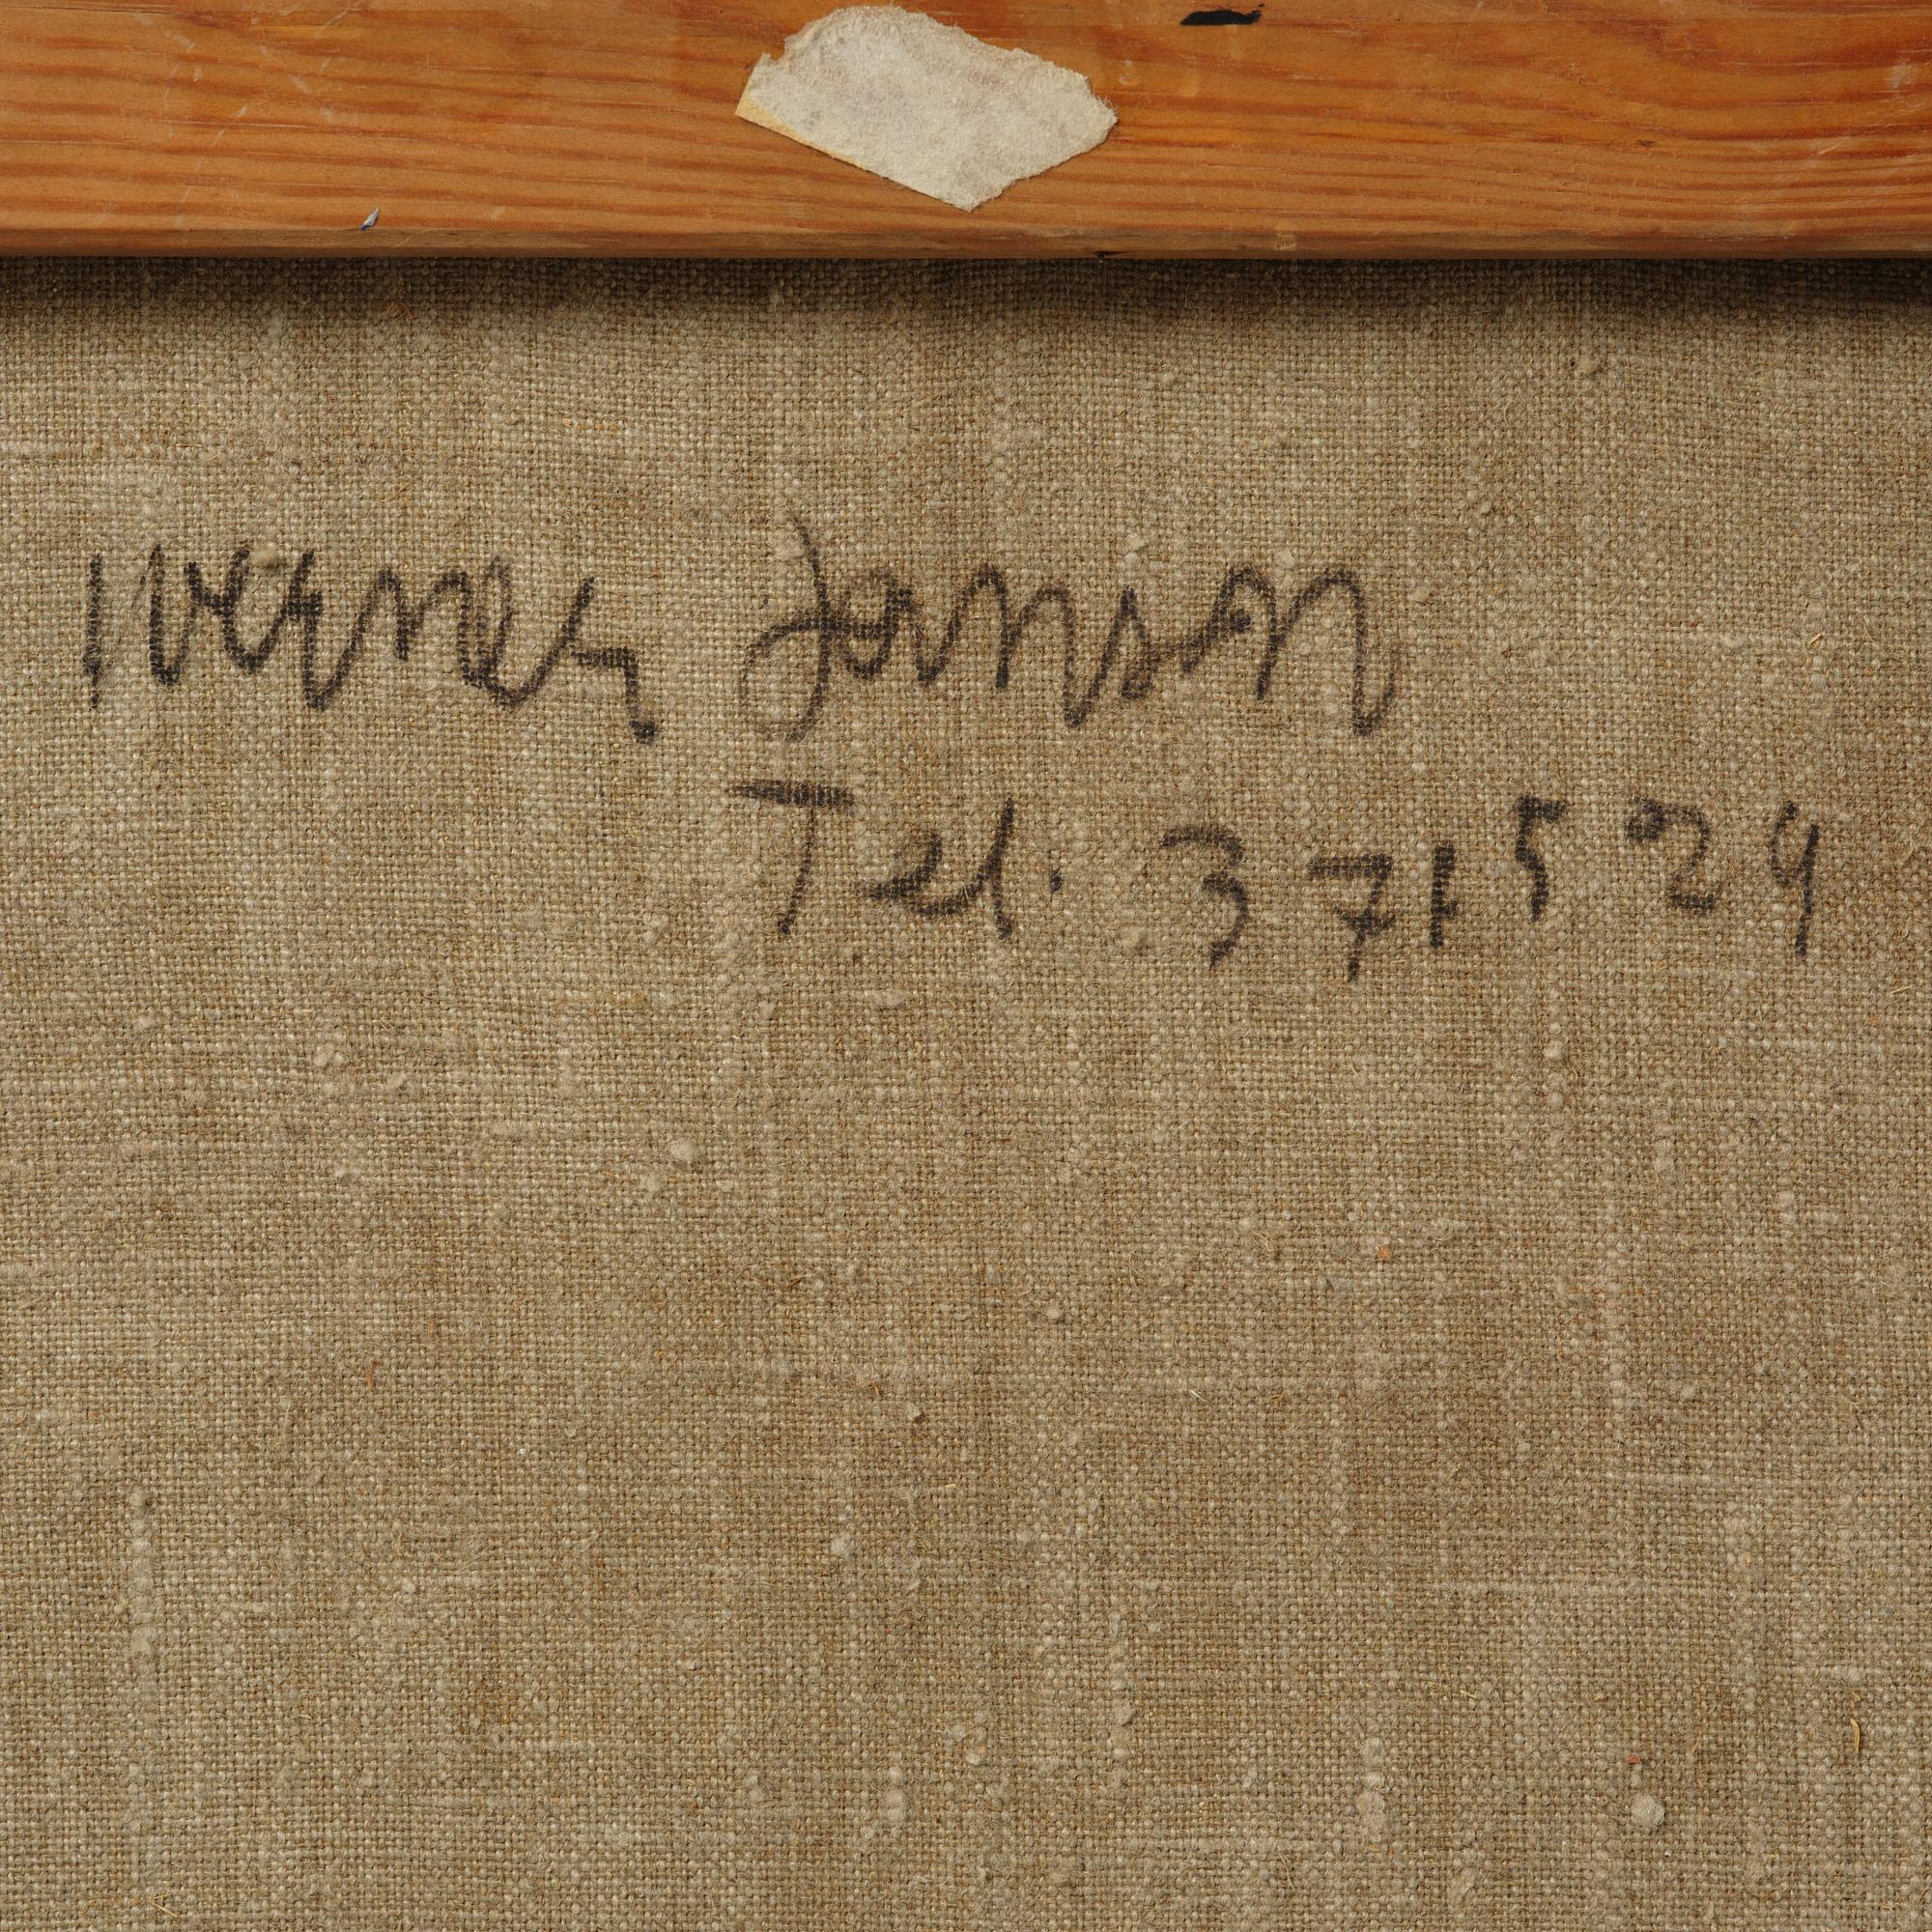 Werner Jonson
Tel. 371529